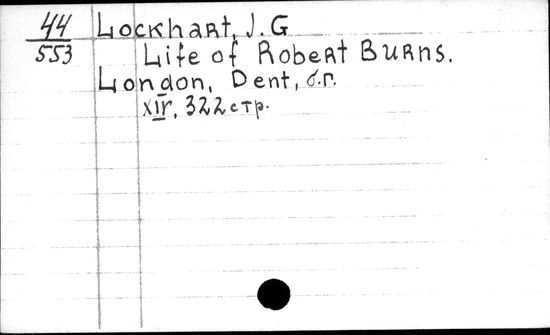 44 Lockhart, J. G
553 Life of Robert Burns.
London, Dent, б.г.
XIV, 322 стр.